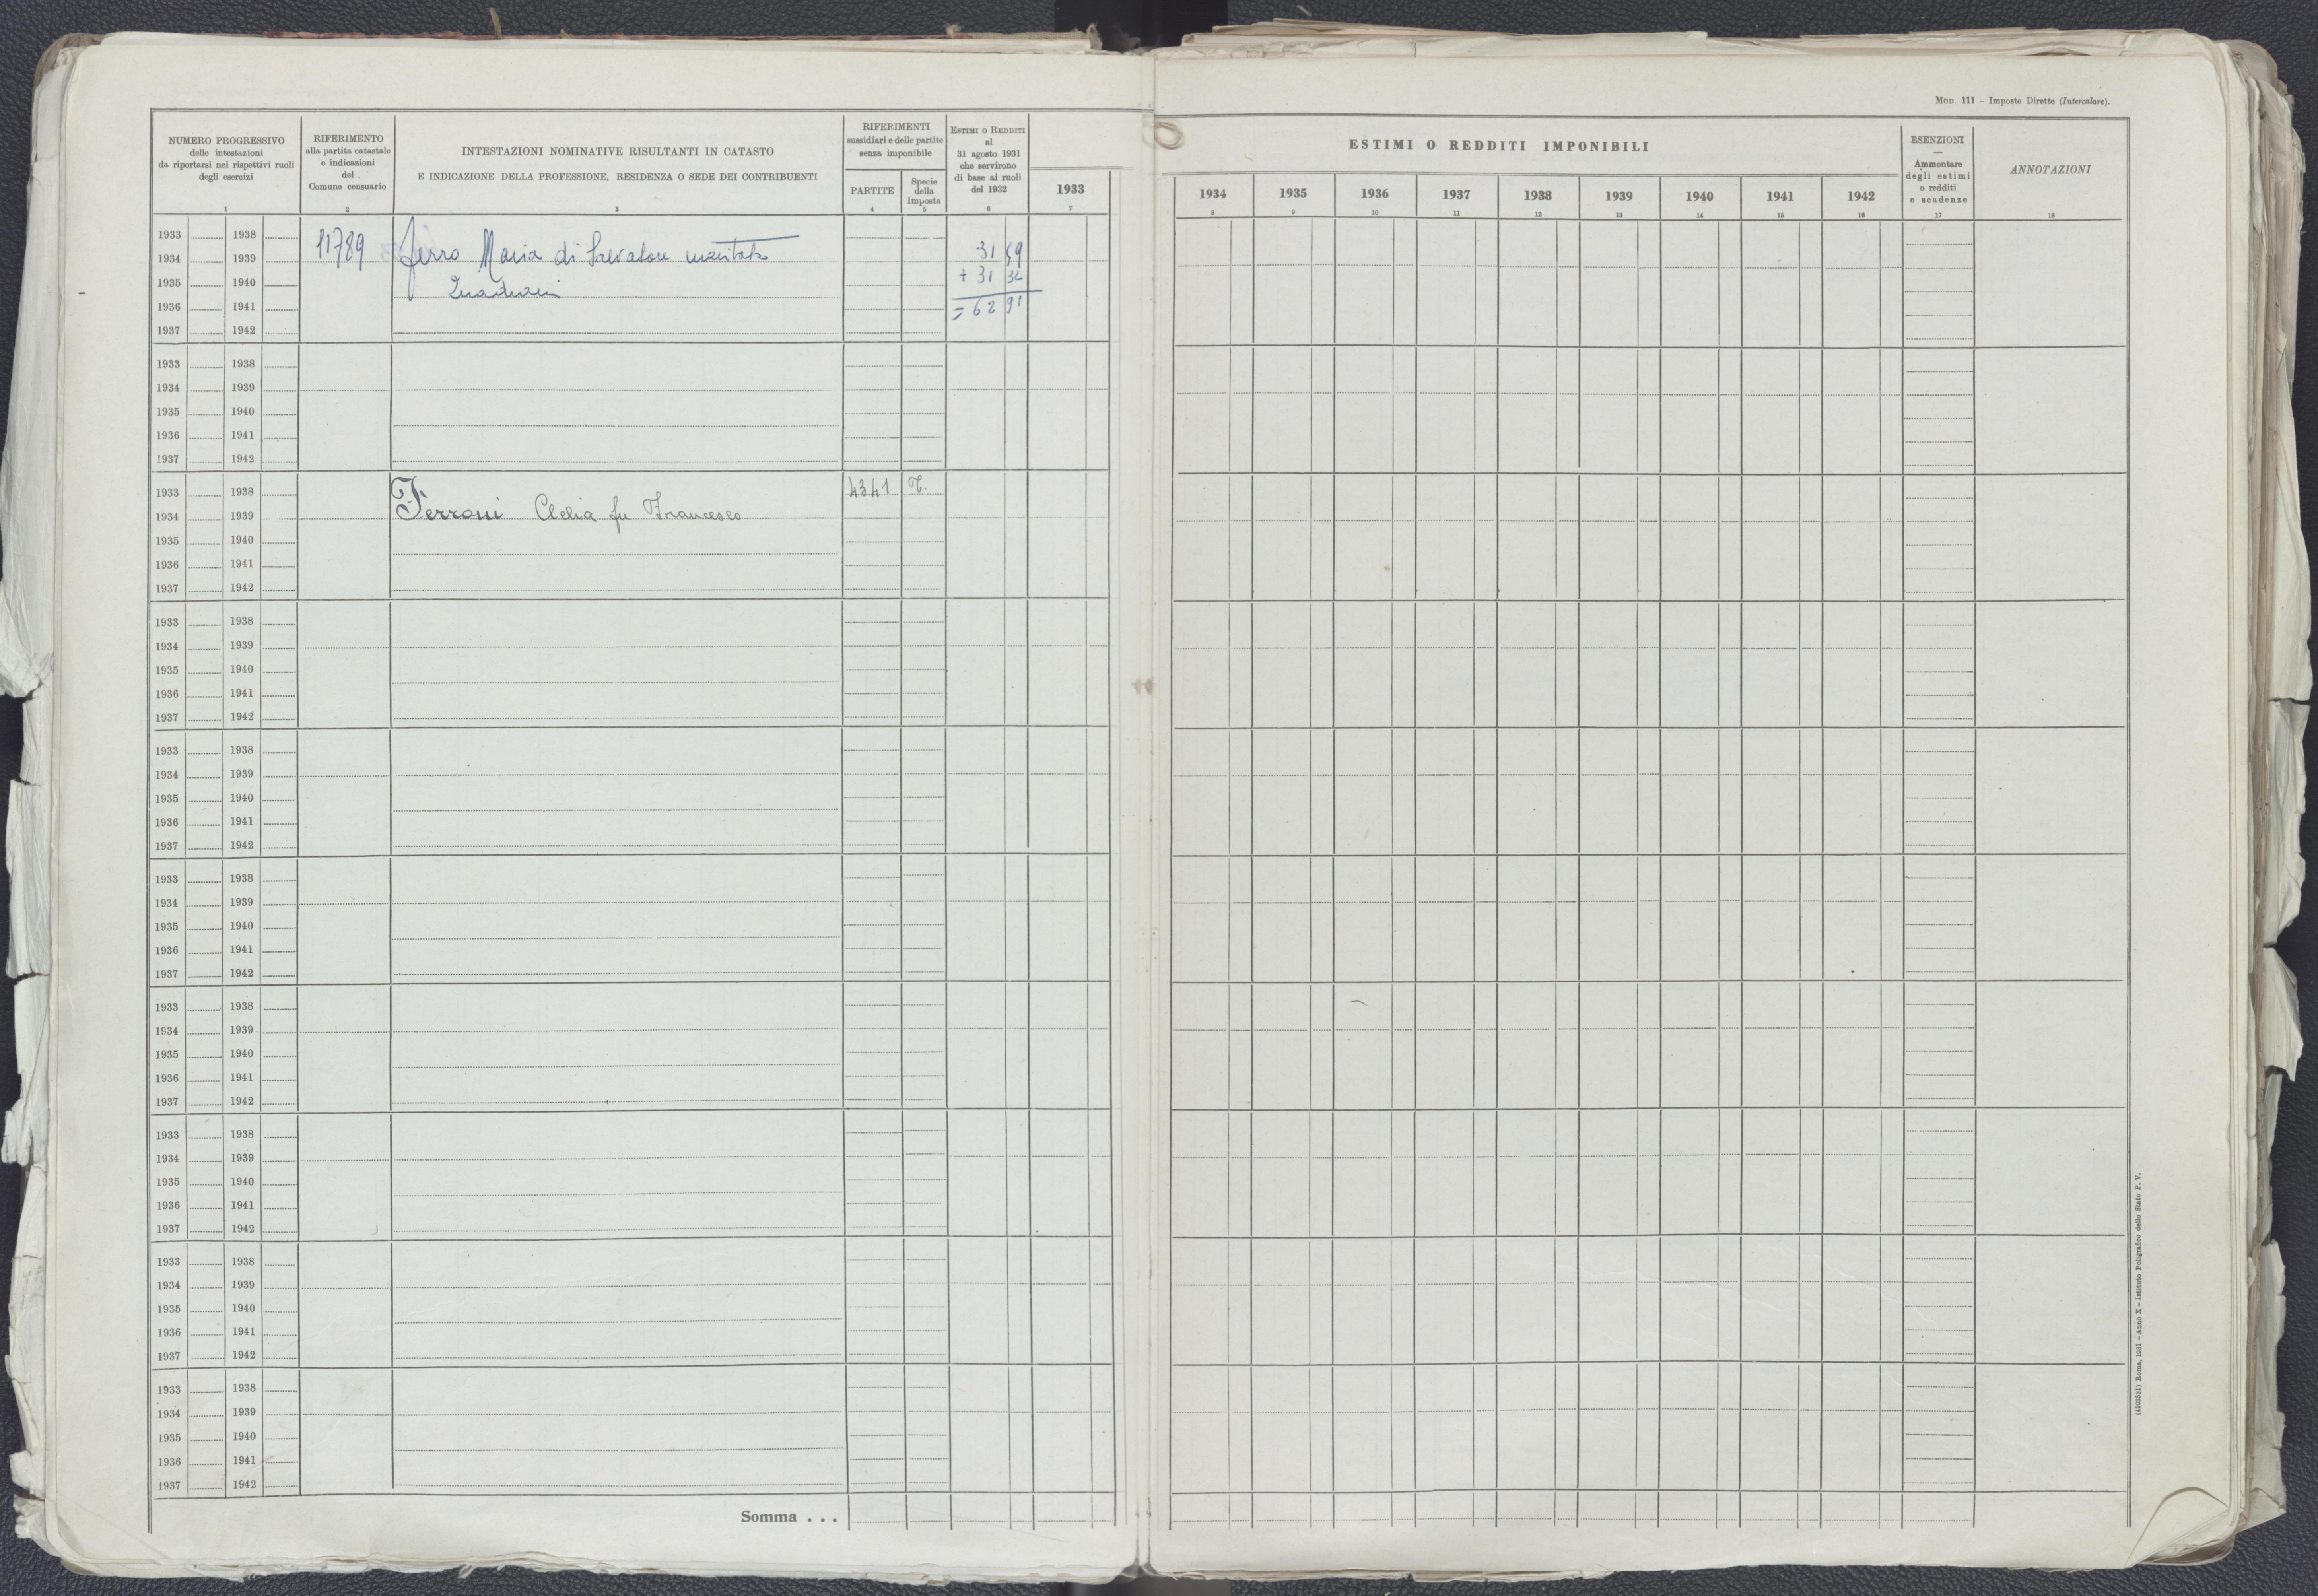 Mod. 111 - Imposte Dirette (Intercalare).
NUMERO PROGRESSIVO
delle intestazioni
da riportarsi nei rispettivi ruoli
degli esercizi
1
RIFERIMENTO
alla partita catastale
e indicazioni
del
Comune censuario
2
INTESTAZIONI NOMINATIVE RISULTANTI IN CATASTO
E INDICAZIONE DELLA PROFESSIONE, RESIDENZA O SEDE DEI CONTRIBUENTI
3
RIFERIMENTI
sussidiari e delle partite
senza imponibile
PARTITE
4
Specie
della
imposta
5
Estimi o Redditi
al
31 agosto 1931
che servirono
di base ai ruoli
del 1932
6
1933
7
ESTIMI O REDDITI IMPONIBILI
1934 1935 1936 1937 1938 1939 1940 1941 1942
8 9 10 11 12 13 14 15 16
ESENZIONI
—
Ammontare
degli estimi
o redditi
e scadenze
17
ANNOTAZIONI
18
1933 1938
1934 1939 11789 Ferro Maria di Salvatore maritata 31 59
1935 1940 + 31 32
1936 1941 = 62 91
1937 1942
1933 1938
1934 1939
1935 1940
1936 1941
1937 1942
1933 1938 4341 T.
1934 1939 Ferroni Clelia fu Francesco
1935 1940
1936 1941
1937 1942
1933 1938
1934 1939
1935 1940
1936 1941
1937 1942
1933 1938
1934 1939
1935 1940
1936 1941
1937 1942
1933 1938
1934 1939
1935 1940
1936 1941
1937 1942
1933 1938
1934 1939
1935 1940
1936 1941
1937 1942
1933 1938
1934 1939
1935 1940
1936 1941
1937 1942
1933 1938
1934 1939
1935 1940
1936 1941
1937 1942
1933 1938
1934 1939
1935 1940
1936 1941
1937 1942
Somma . . .
Roma, 1931 - Anno X - Istituto Poligrafico dello Stato P. V.